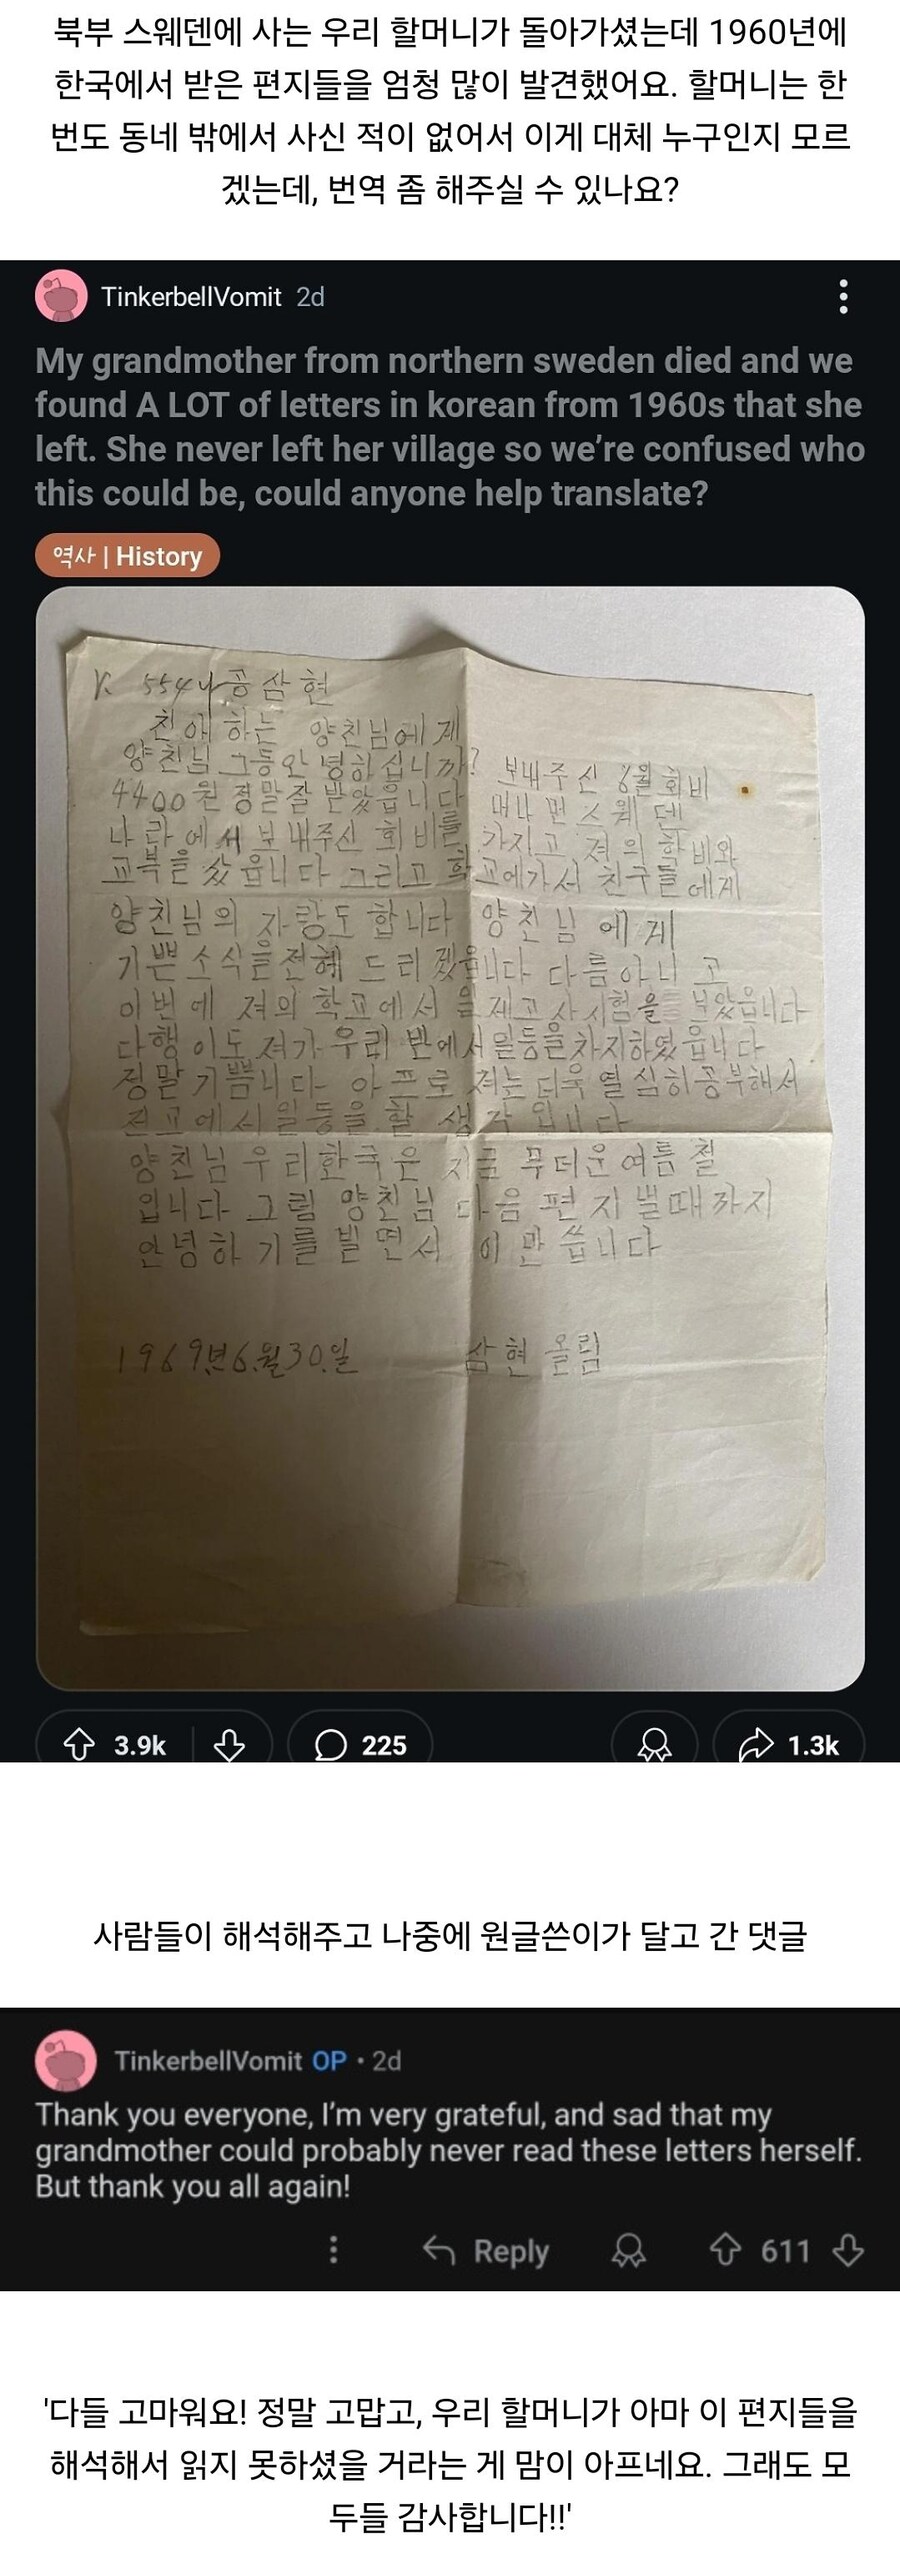 북부 스웨덴에 사는 우리 할머니가 돌아가셨는데 1960년에
한국에서 받은 편지들을 엄청 많이 발견했어요. 할머니는 한
번도 동네 밖에서 사신 적이 없어서 이게 대체 누구인지 모르
겠는데, 번역 좀 해주실 수 있나요?
TinkerbellVomit 2d
My grandmother from northern sweden died and we
found A LOT of letters in korean from 1960s that she
left. She never left her village so we’re confused who
this could be, could anyone help translate?
역사 | History
K. 5541 공삼현
친애하는 양친님에게
양친님 그동안 녕하십니까? 보내주신 6월 회비
4400원 정말잘 받았읍니다 머나먼 스웨덴
나라에서 보내주신 회비를 가지고 져의 학비와
교복을 샀읍니다 그리고 학교에가서 친구들에게
양친님의 자랑도 합니다 양친님에게
기쁜소식을전해 드리겠읍니다 다름아니고
이번에 져의 학교에서 일제고사시험을 보았읍니다
다행이도 져가 우리 반에서일등을차지하였읍니다
정말기쁨니다 아프로 져는 더욱 열심히공부해서
전교에서일등을 할 생각입니다
양친님 우리한국은 지금 무더운여름철
입니다 그럼 양친님 다음 편지 뵐때까지
안녕하기를 빌면서 이만 씁니다
1969년6.월30.일 삼현 올림
3.9k 225 1.3k
사람들이 해석해주고 나중에 원글쓴이가 달고 간 댓글
TinkerbellVomit OP • 2d
Thank you everyone, I’m very grateful, and sad that my
grandmother could probably never read these letters herself.
But thank you all again!
Reply 611
'다들 고마워요! 정말 고맙고, 우리 할머니가 아마 이 편지들을
해석해서 읽지 못하셨을 거라는 게 맘이 아프네요. 그래도 모
두들 감사합니다!!'